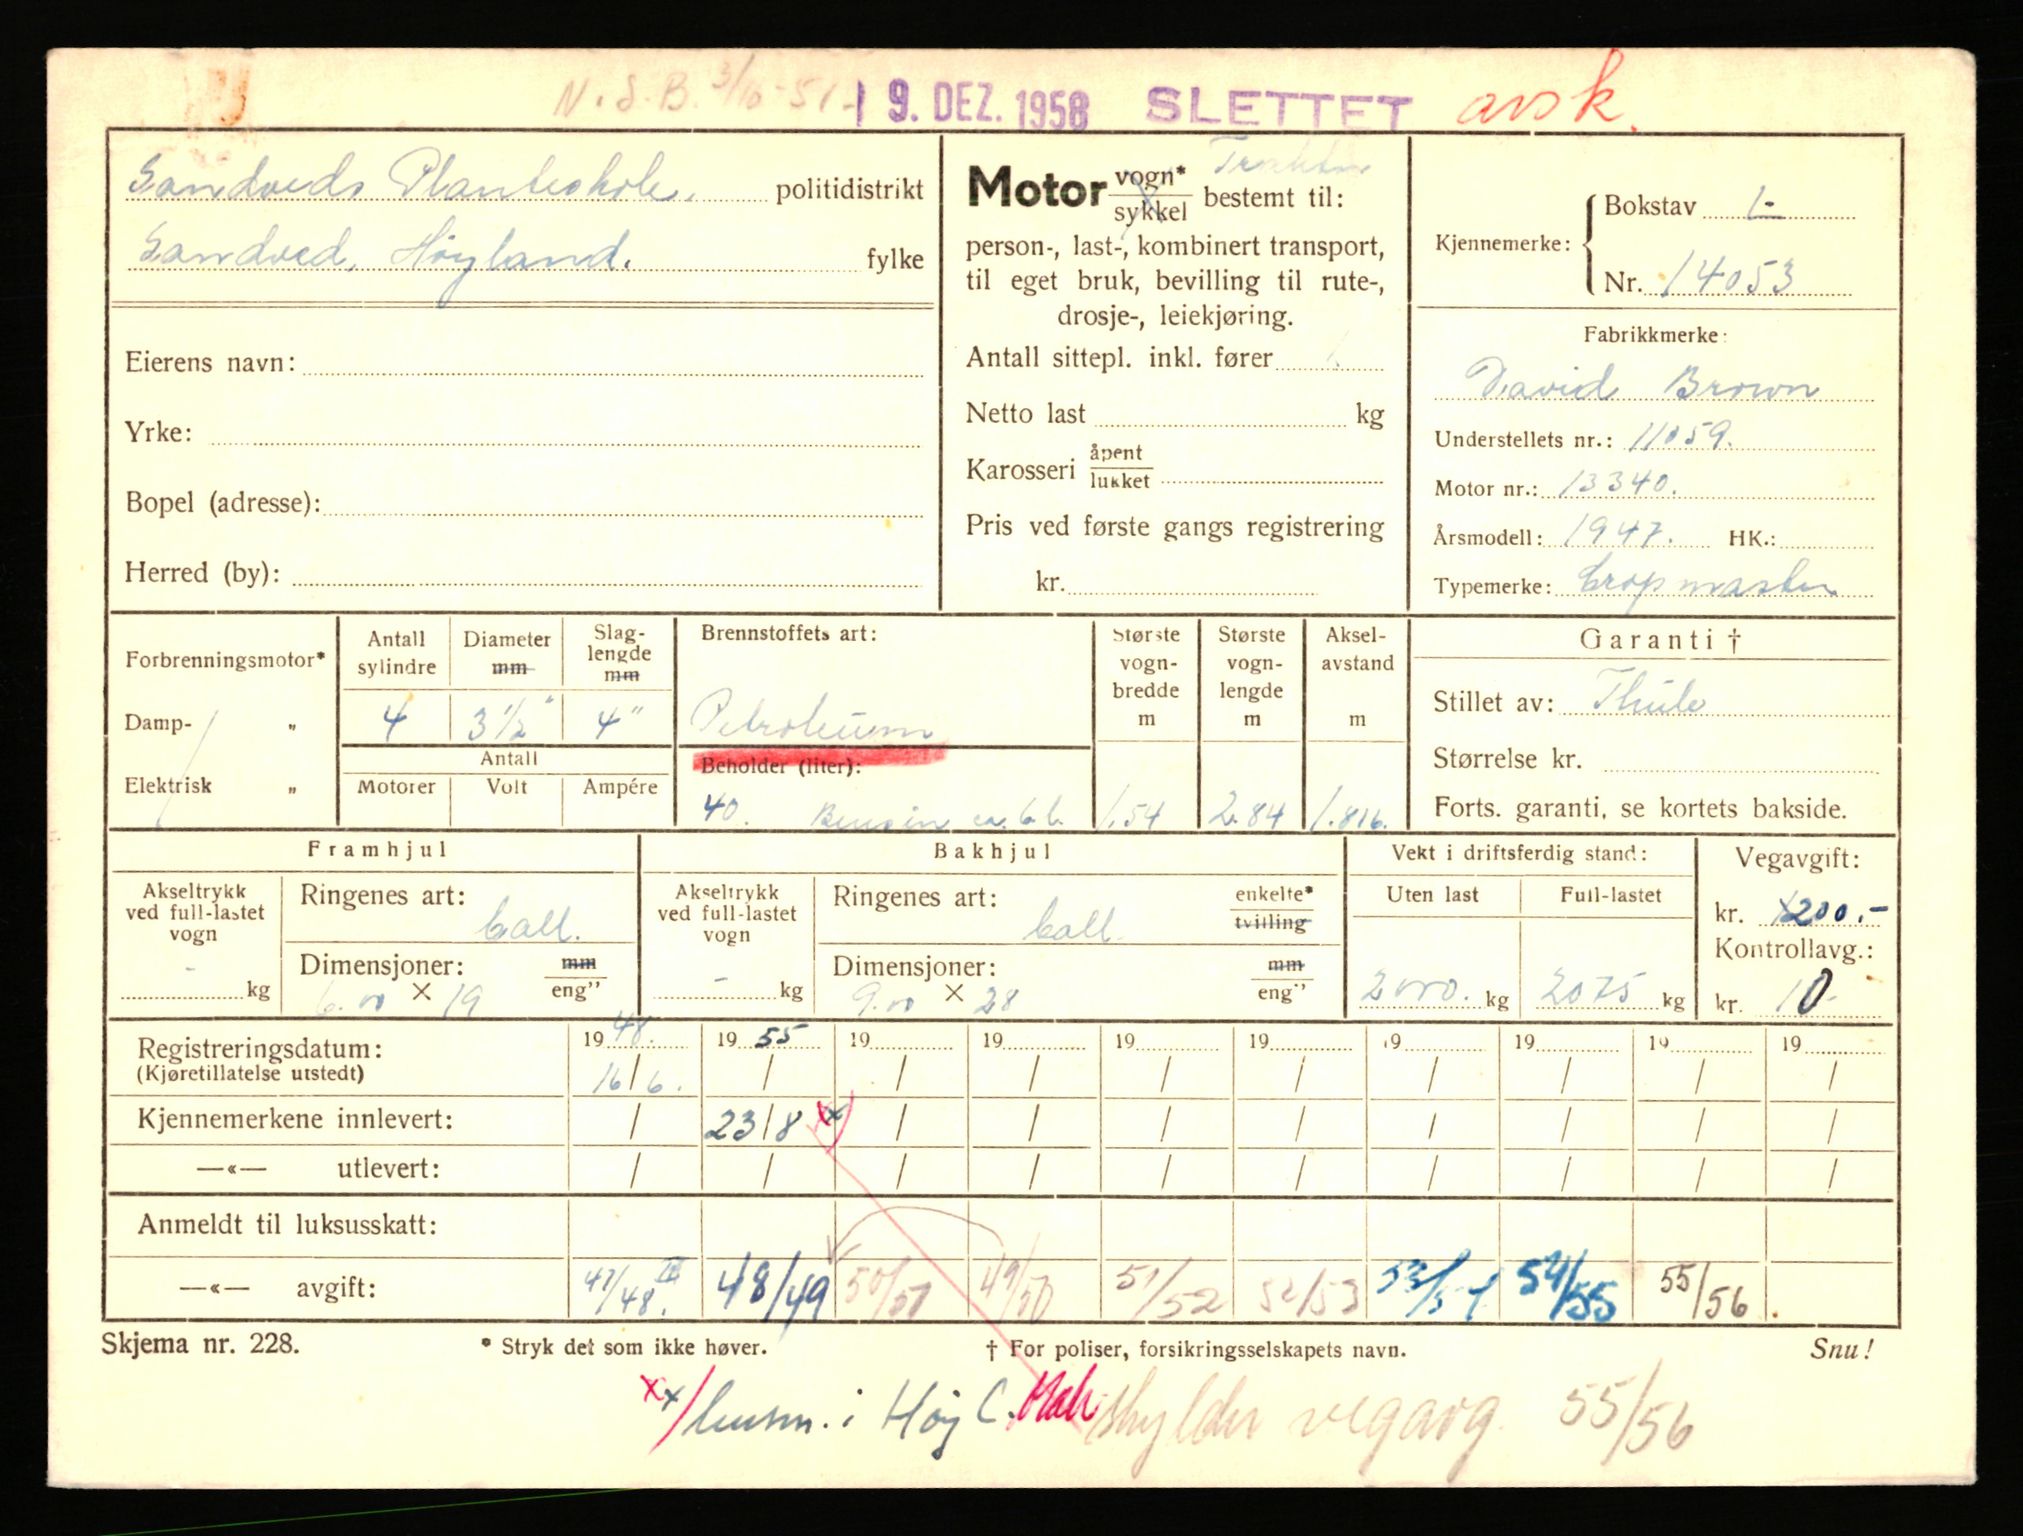 N.S.B. 3/10-51- 19. DEZ. 1958 SLETTET avsk.
Sandveds Planteskole. politidistrikt
Sandved, Høyland. fylke
Eierens navn:
Yrke:
Bopel (adresse):
Herred (by):
Motor vogn* / sykkel bestemt til: Traktor
person-, last-, kombinert transport,
til eget bruk, bevilling til rute-,
drosje-, leiekjøring.
Antall sittepl. inkl. fører 1.
Netto last kg
Karosseri åpent / lukket
Pris ved første gangs registrering
kr.
Kjennemerke: Bokstav L-
Nr. 14053
Fabrikkmerke:
David Brown
Understellets nr.: 11059.
Motor nr.: 13340.
Årsmodell: 1947. HK.:
Typemerke: Cropmaster
Forbrenningsmotor*
Damp- „
Elektrisk „
Antall sylindre Diameter mm Slaglengde mm
4 3 1/2" 4"
Antall
Motorer Volt Ampére
Brennstoffets art:
Petroleum
Beholder (liter):
40. Bensin ca. 6 l.
Største vognbredde m Største vognlengde m Akselavstand m
1.54 2.84 1.816.
Garanti †
Stillet av: Thule
Størrelse kr.
Forts. garanti, se kortets bakside.
Framhjul
Akseltrykk ved full-lastet vogn - kg
Ringenes art: Ball.
Dimensjoner: mm / eng" 6.00 × 19
Bakhjul
Akseltrykk ved full-lastet vogn - kg
Ringenes art: Ball. enkelte* / tvilling
Dimensjoner: mm / eng" 9.00 × 28
Vekt i driftsferdig stand:
Uten last Full-lastet
2000. kg 2075 kg
Vegavgift:
kr. 200.-
Kontrollavg.:
kr. 10-
Registreringsdatum: 1948. 1955 19 19 19 19 19 19 19 19
(Kjøretillatelse utstedt) 16/6. / / / / / / / / /
Kjennemerkene innlevert: / 23/8 xx) / / / / / / / /
—«— utlevert: / / / / / / / / / /
Anmeldt til luksusskatt:
—«— avgift: 47/48. IV 48/49 50/51 49/50 51/52 52/53 53/54 54/55 55/56.
Skjema nr. 228. * Stryk det som ikke høver. † For poliser, forsikringsselskapets navn. Snu!
xx/ i Høy C. skylder vegavg. 55/56